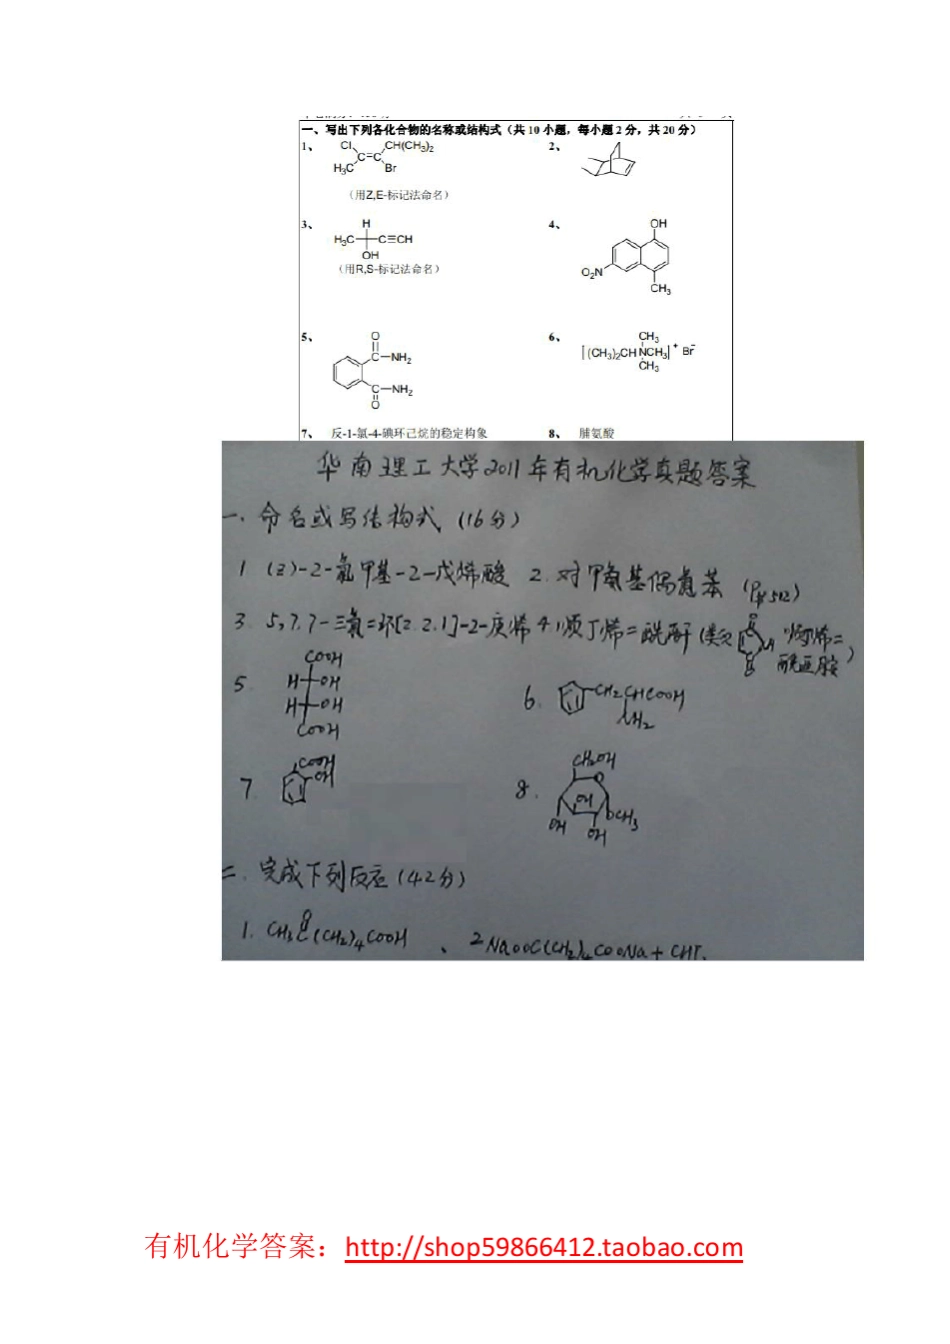 一、写出下列各化合物的名称或结构式（共 10 小题，每小题 2 分，共 20 分）
1、 Cl CH(CH3)2 C=C H3C Br
2、
（用Z,E-标记法命名）
3、 H H3C C≡CH OH
（用R,S-标记法命名）
4、 OH O2N CH3
5、 O C-NH2 C-NH2 O
6、 [(CH3)2CH NCH3]+ Br- CH3 CH3
7、 反-1-氯-4-碘环己烷的稳定构象
8、 脯氨酸
华南理工大学2011年有机化学真题答案
一、命名或写结构式（16分）
1 (Z)-2-氯甲基-2-戊烯酸 2. 对甲氨基偶氮苯 (P 512)
3. 5,7,7-三氯二环[2.2.1]-2-庚烯 4. 顺丁烯二酰酐
5. COOH H OH H OH COOH
6. CH2CHCOOH NH2
7. COOH OH
8. CH2OH O OH OH OH OCH3
二、完成下列反应（42分）
1. CH3C(CH2)4COOH O 、 2 NaOOC(CH2)4COONa + CHI3
有机化学答案：http://shop59866412.taobao.com